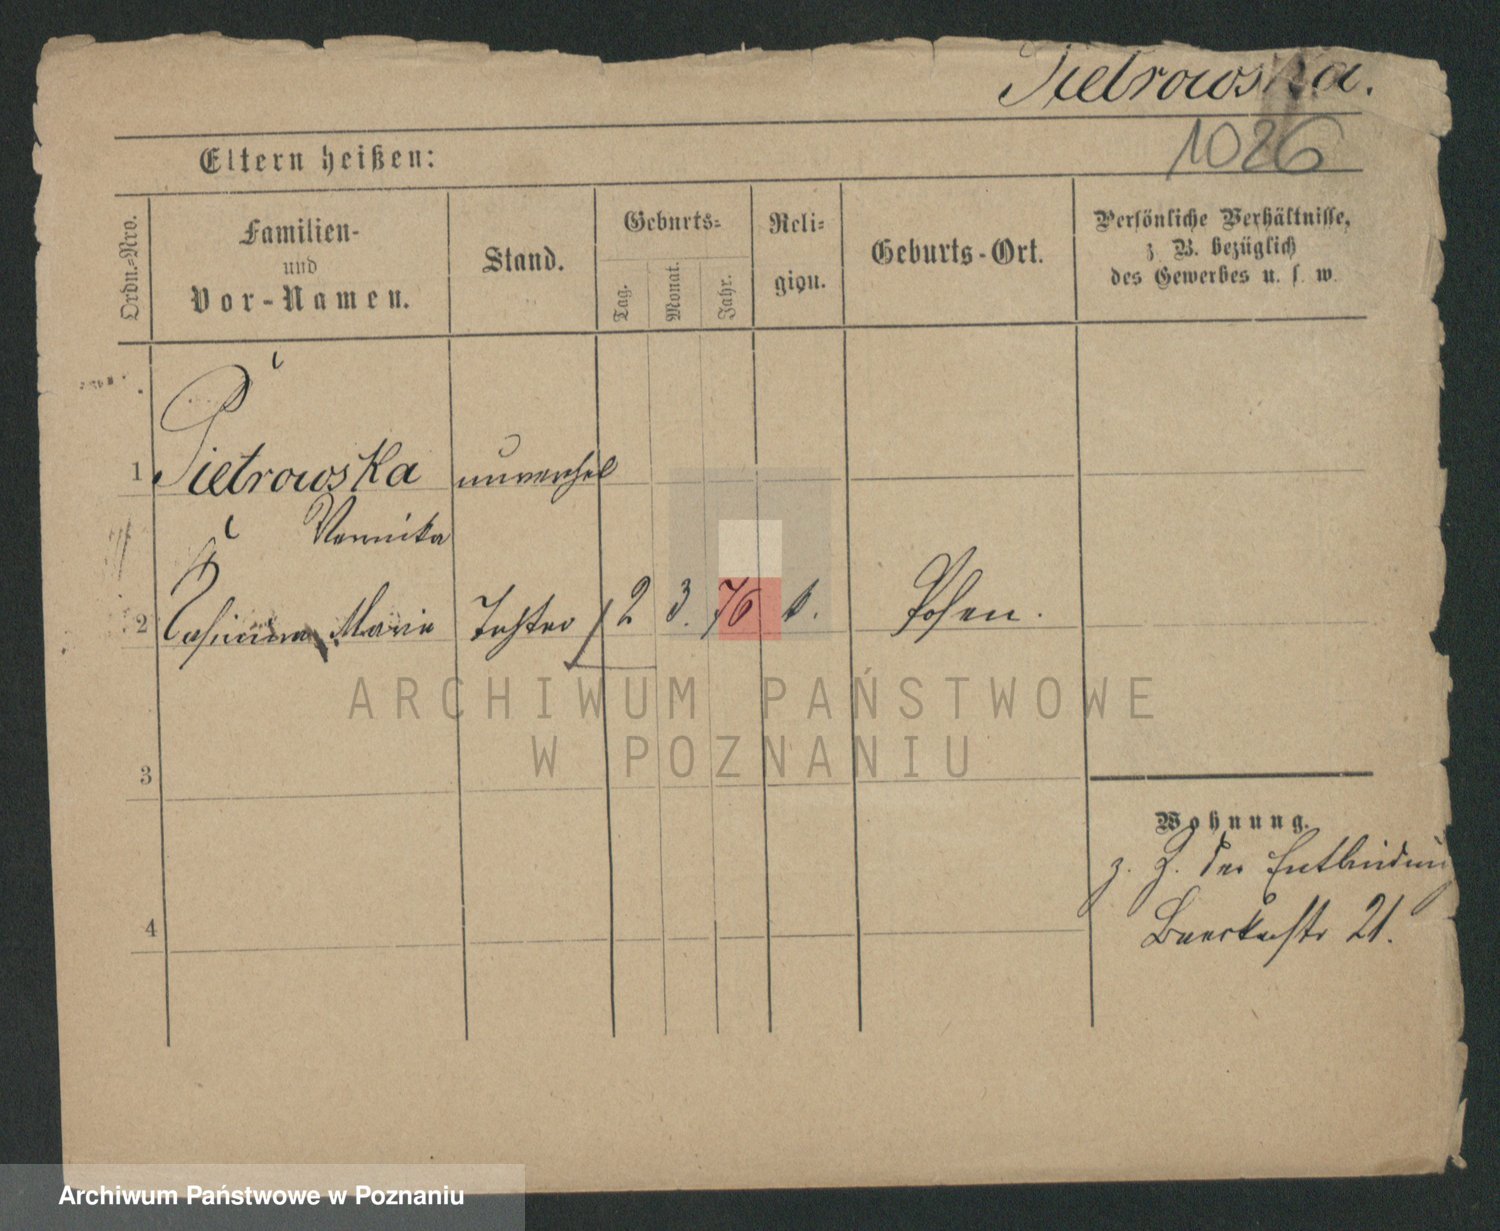 Pietrowska.
1026
Eltern heißen:
Ordn.-Nro.
Familien-
und
Vor-Namen.
Stand.
Geburts-
Tag.
Monat.
Jahr.
Reli-
gion.
Geburts-Ort.
Persönliche Verhältnisse,
z. B. bezüglich
des Gewerbes u. s. w.
1 Pietrowska unverehel
Veronika
2 Marie Tochter 12 3. 76 k. Posen.
ARCHIWUM PAŃSTWOWE
W POZNANIU
3
Wohnung.
z. Z. der Entbindung
21.
4
Archiwum Państwowe w Poznaniu